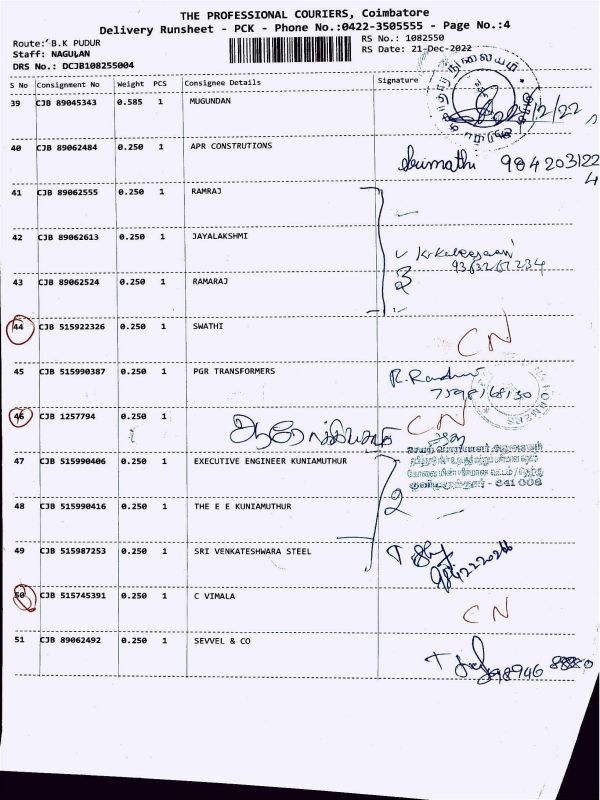 THE PROFESSIONAL COURIERS, Coimbatore
Delivery Runsheet - PCK - Phone No.:0422-3505555 - Page No.:4
Route: B.K PUDUR
RS No.: 1082550
Staff: NAGULAN
RS Date: 21-Dec-2022
DRS No.: DCJB108255004
S No Consignment No Weight PCS Consignee Details Signature
39 CJB 89045343 0.585 1 MUGUNDAN
40 CJB 89062484 0.250 1 APR CONSTRUTIONS
41 CJB 89062555 0.250 1 RAMRAJ
42 CJB 89062613 0.250 1 JAYALAKSHMI
43 CJB 89062524 0.250 1 RAMARAJ
44 CJB 515922326 0.250 1 SWATHI CN
45 CJB 515990387 0.250 1 PGR TRANSFORMERS
7598168130
46 CJB 1257794 0.250 1 CN
47 CJB 515990406 0.250 1 EXECUTIVE ENGINEER KUNIAMUTHUR
48 CJB 515990416 0.250 1 THE E E KUNIAMUTHUR
49 CJB 515987253 0.250 1 SRI VENKATESHWARA STEEL
50 CJB 515745391 0.250 1 C VIMALA CN
51 CJB 89062492 0.250 1 SEVVEL & CO